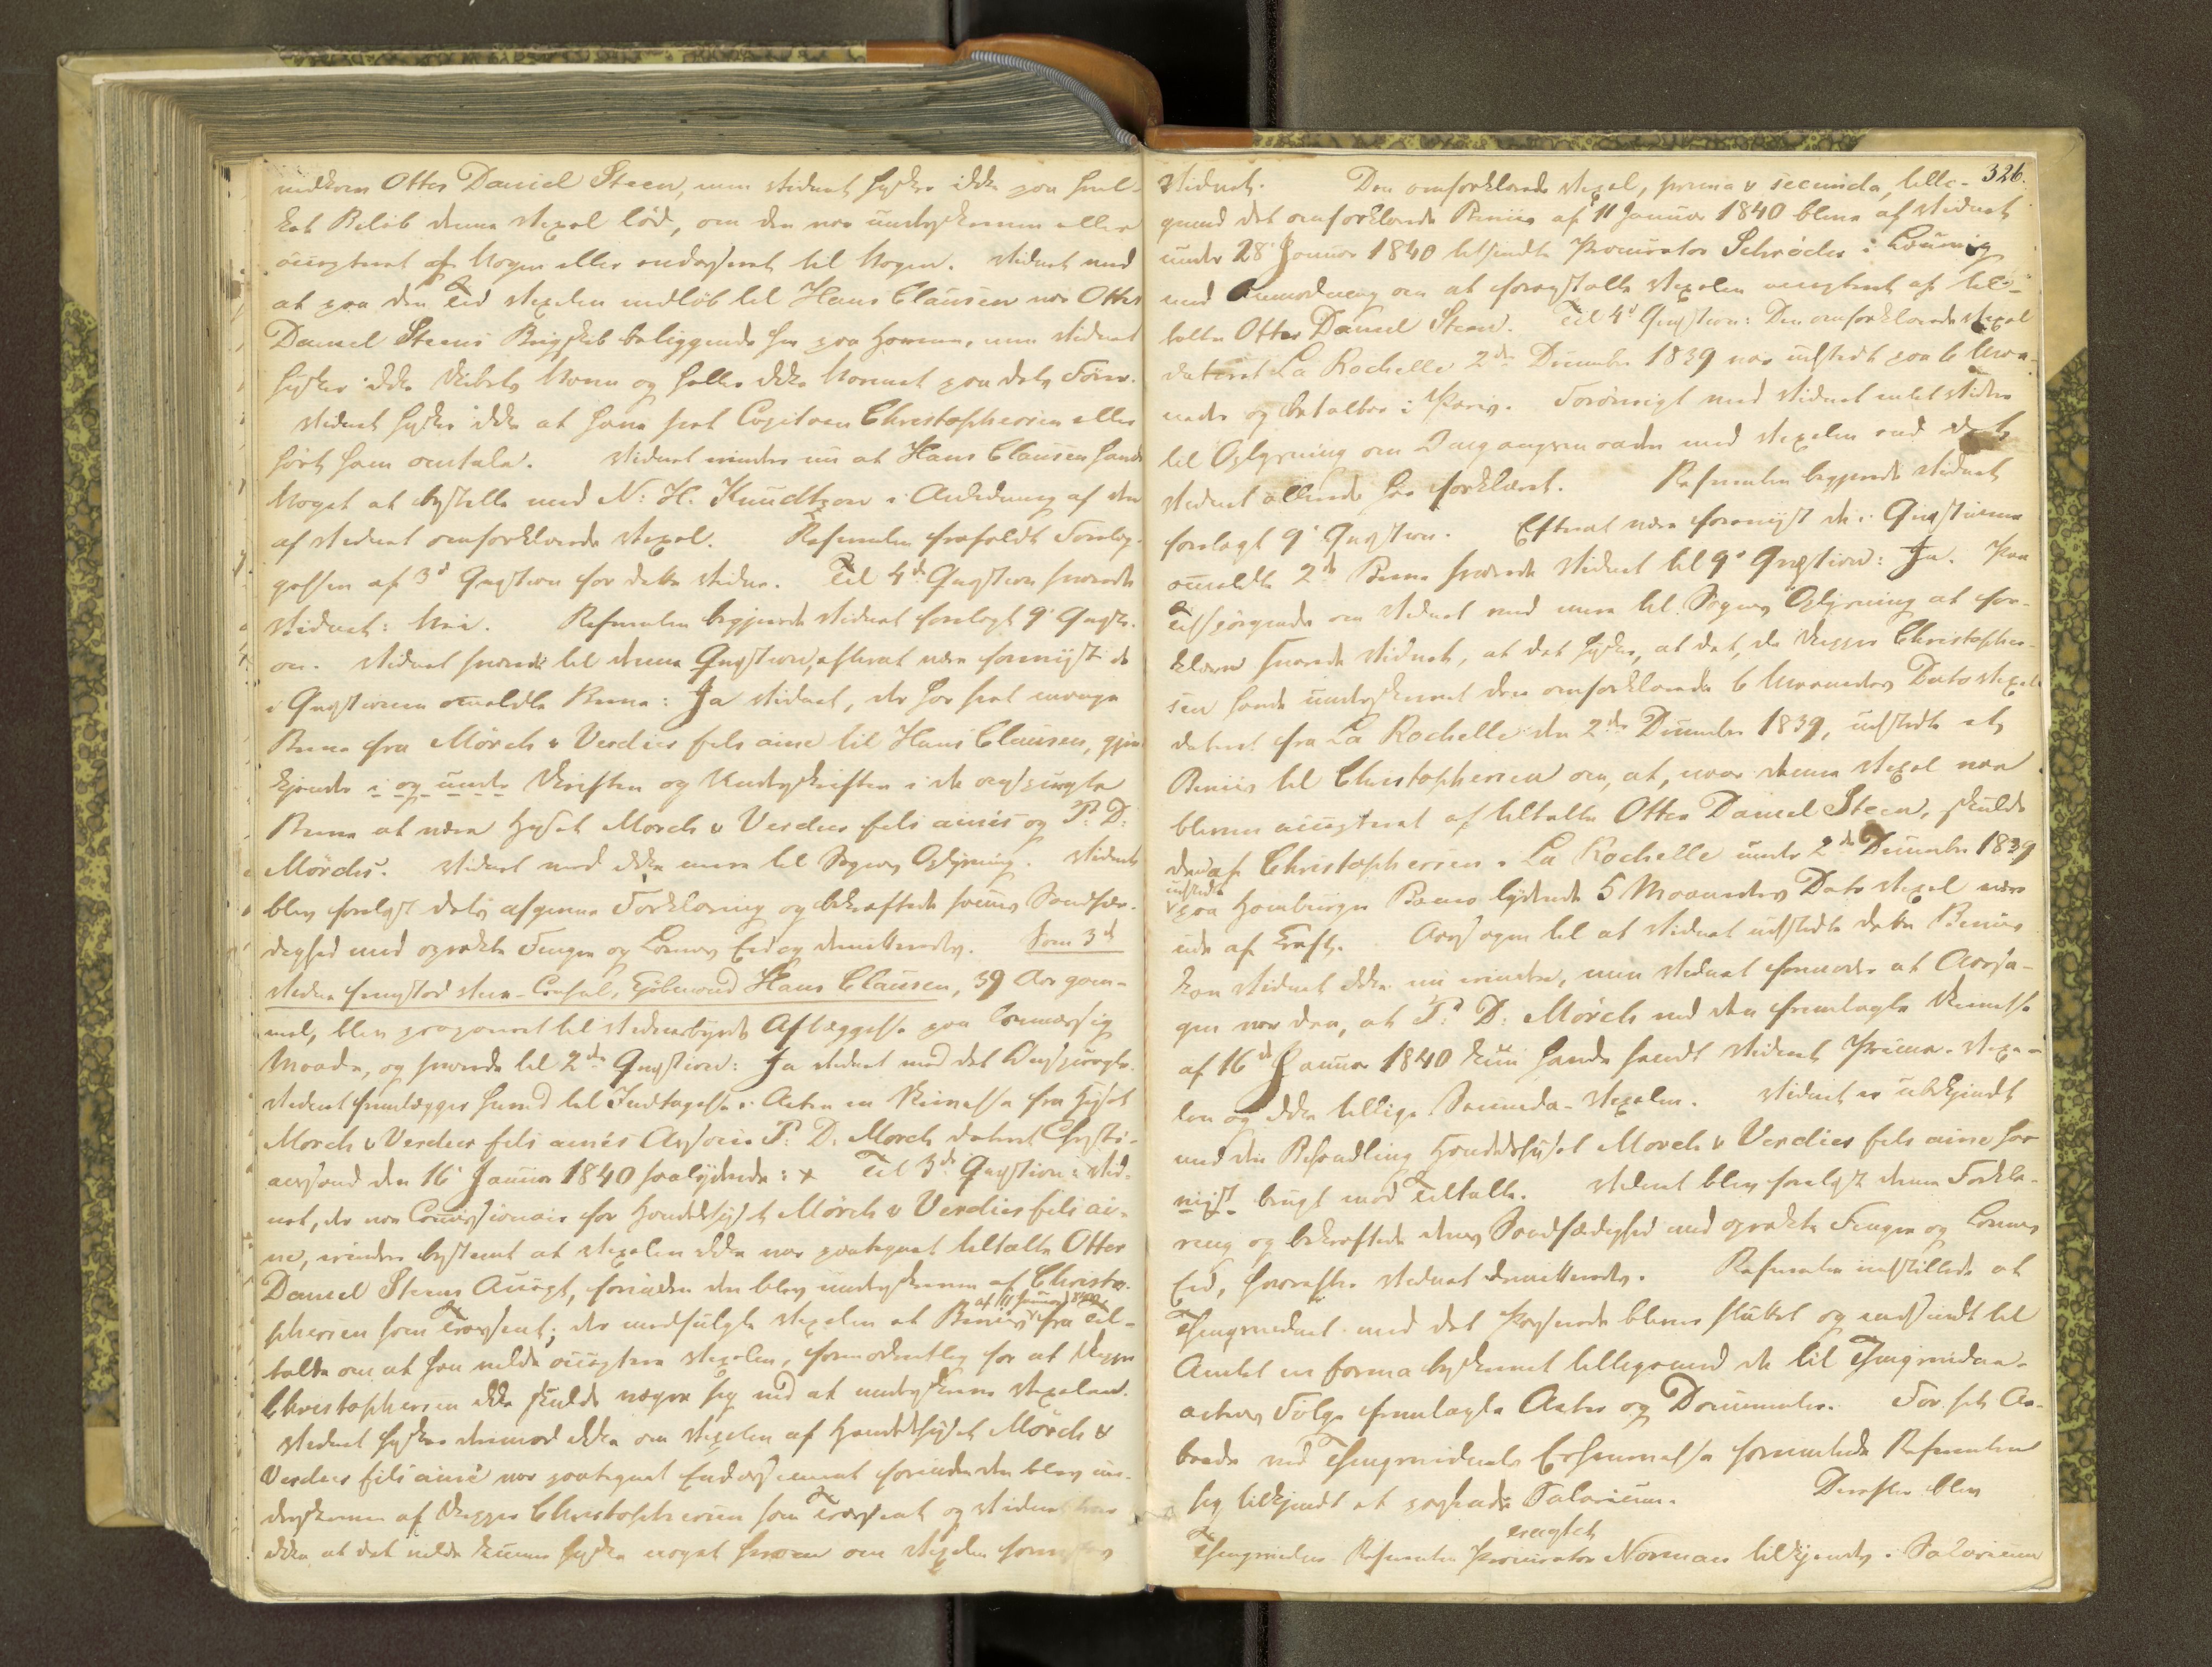 vedkom Otter Daniel Steen, men Vidnet husker ikke paa hvil-
ket Beløb denne Vexel lød, om den var underskreven eller
accepteret af Nogen eller endosseret til Nogen. Vidnet ved
at paa den Tid Vexelen indløb til Hans Clausen var Otter
Daniel Steens Brigskib beliggende her paa Havnen, men Vidnet
husker ikke Skibets Navn og heller ikke Navnet paa dets Fører.
Vidnet husker ikke at have seet Capitain Christophersen eller
hørt ham omtale. Vidnet erindrer nu at Hans Clausen havde
Noget at bestille med N: H. Knudtzon i Anledning af den
af Vidnet omforklarede Vexel. Referenten frafaldt Forelæg-
gelsen af 3d Qvæstion for dette Vidne. Til 4de Qvæstion svarede
Vidnet: Nei. Referenten begjerede Vidnet forelagt 9' Qvæsti-
on. Vidnet svarede til denne Qvæstion, efterat være foreviist de
i Qvæstionen ommeldte Breve: Ja Vidnet, der har seet mange
Breve fra Mörch & Verdier fils ainé til Hans Clausen, gjen-
kjender i og under Skriften og Underskriften i de omspurgte
Breve at være Huset Morch & Verdier fils ainés og P. D:
Mörchs. Vidnet ved ikke mere til Sagens Oplysning. Vidnet
blev forelæst dets afgivne Forklaring og bekræftede sammes Sandfær-
dighed med oprakte Fingre og Lovens Eed og demitteredes. Som 3d
Vidne fremstod Vice-Consul, Kjøbmand Hans Clausen, 39 Aar gam-
mel, blev præpareret til Vidnesbyrds Aflæggelse paa lovmæssig
Maade, og svarede til 2de Qvæstion: Ja Vidnet ved det Omspurgte.
Vidnet fremlægger herved til Indtagelse i Acten en Skrivelse fra Huset
Morch & Verdier fils ainés Associe P. D. Morch dateret Christi-
anssund den 16' Januar 1840 saalydende: x Til 3de Qvæstion: Vid-
net, der var Comissionair for Handelshuset Mörch & Verdier fils ai-
ne, erindrer bestemt at Vexelen ikke var paategnet tiltalte Otter
Daniel Steens Accept, forinden den blev underskreven af Christo-
phersen som Trassent; der medfulgte Vexelen et Reviis af 11 Januar 1840 fra Til-
talte om, at han vilde acceptere Vexelen, formodentlig for at Skipper
Christophersen ikke skulde vægre sig ved at underskrive Vexelen.
Vidnet husker derimod ikke om Vexelen af Handelshuset Mörch &
Verdier fils ainé var paategnet Endossement forinden den blev un-
derskreven af Skipper Christophersen som Trassent og Vidnet
ikke at det vilde kunne huske noget herom om Vexelen
326.
Vidnet. Den omforklarede Vexel, prima & secunda, tille-
gemed det omforklarede Reviis af 11 Januar 1840 bleve af Vidnet
under 28' Januar 1840 tilsendte Procurator Schröder i
med Anmodning om at foranstalte Vexelen accepteret af til-
talte Otter Daniel Steen. Til 4' Qvæstion: Den omforklarede Vexel
dateret La Rochelle 2de December 1839 var udstedt paa 6 Maa-
neder og betalbar i Paris. Forøvrigt ved Vidnet intet videre
til Oplysning om Omgangsmaaden med Vexelen end dets
Vidnet allerede har forklaret. Referenten begjerede Vidnet
forelagt 9' Qvæstion. Efterat være foreviist de i Qvæstionen
ommeldte 2de Breve svarede Vidnet til 9' Qvæstion: Ja. Paa
Tilspørgende om Vidnet ved mere til Sagens Oplysning at for-
klare svarede Vidnet, at det husker, at det, da Skipper Christopher-
sen havde underskrevet den omforklarede 6 Maaneders Dato Vexel
dateret fra La Rochelle den 2de December 1839, udstedte et
Reviis til Christophersen om, at, naar denne Vexel var
bleven accepteret af tiltalte Otter Daniel Steen, skulde
den af Christophersen i La Rochelle under 2de December 1839
udstedte paa Hamburger Banco lydende 5 Maaneders Dato Vexel være
ude af Kraft. Aarsagen til at Vidnet udstedte dette Reviis
kan Vidnet ikke nu erindre, men Vidnet formoder at Aarsa-
gen var den, at P. D: Mörch ved den fremlagte Skrivelse
af 16d Januar 1840 kun havde sendt Vidnet Prima-Vexe-
len og ikke tillige Secunda-Vexelen. Vidnet er ubekjendt
med den Behandling Handelshuset Morch & Verdier fils aine har
viist brugt mod Tiltalte. Vidnet blev forelæst denne Forkla-
ring og bekræftede dens Sandfærdighed med oprakte Fingre og Lovens
Eed, hvorefter Vidnet demitteredes. Referenten indstillede at
Thingsvidnet med det Passerede bliver sluttet og indsendt til
Amtet in forma beskrevet tilligemed de til Thingsvidne-
actens Følge fremlagte Acter og Documenter. For sit Ar-
beide ved Thingsvidnets Erhvervelse formeente Referenten
sig tilkjendt et passende Salarium. Derefter blev
eragtet
Thingsvidnets Referenten Procurator Norman tilkjendes i Salarium